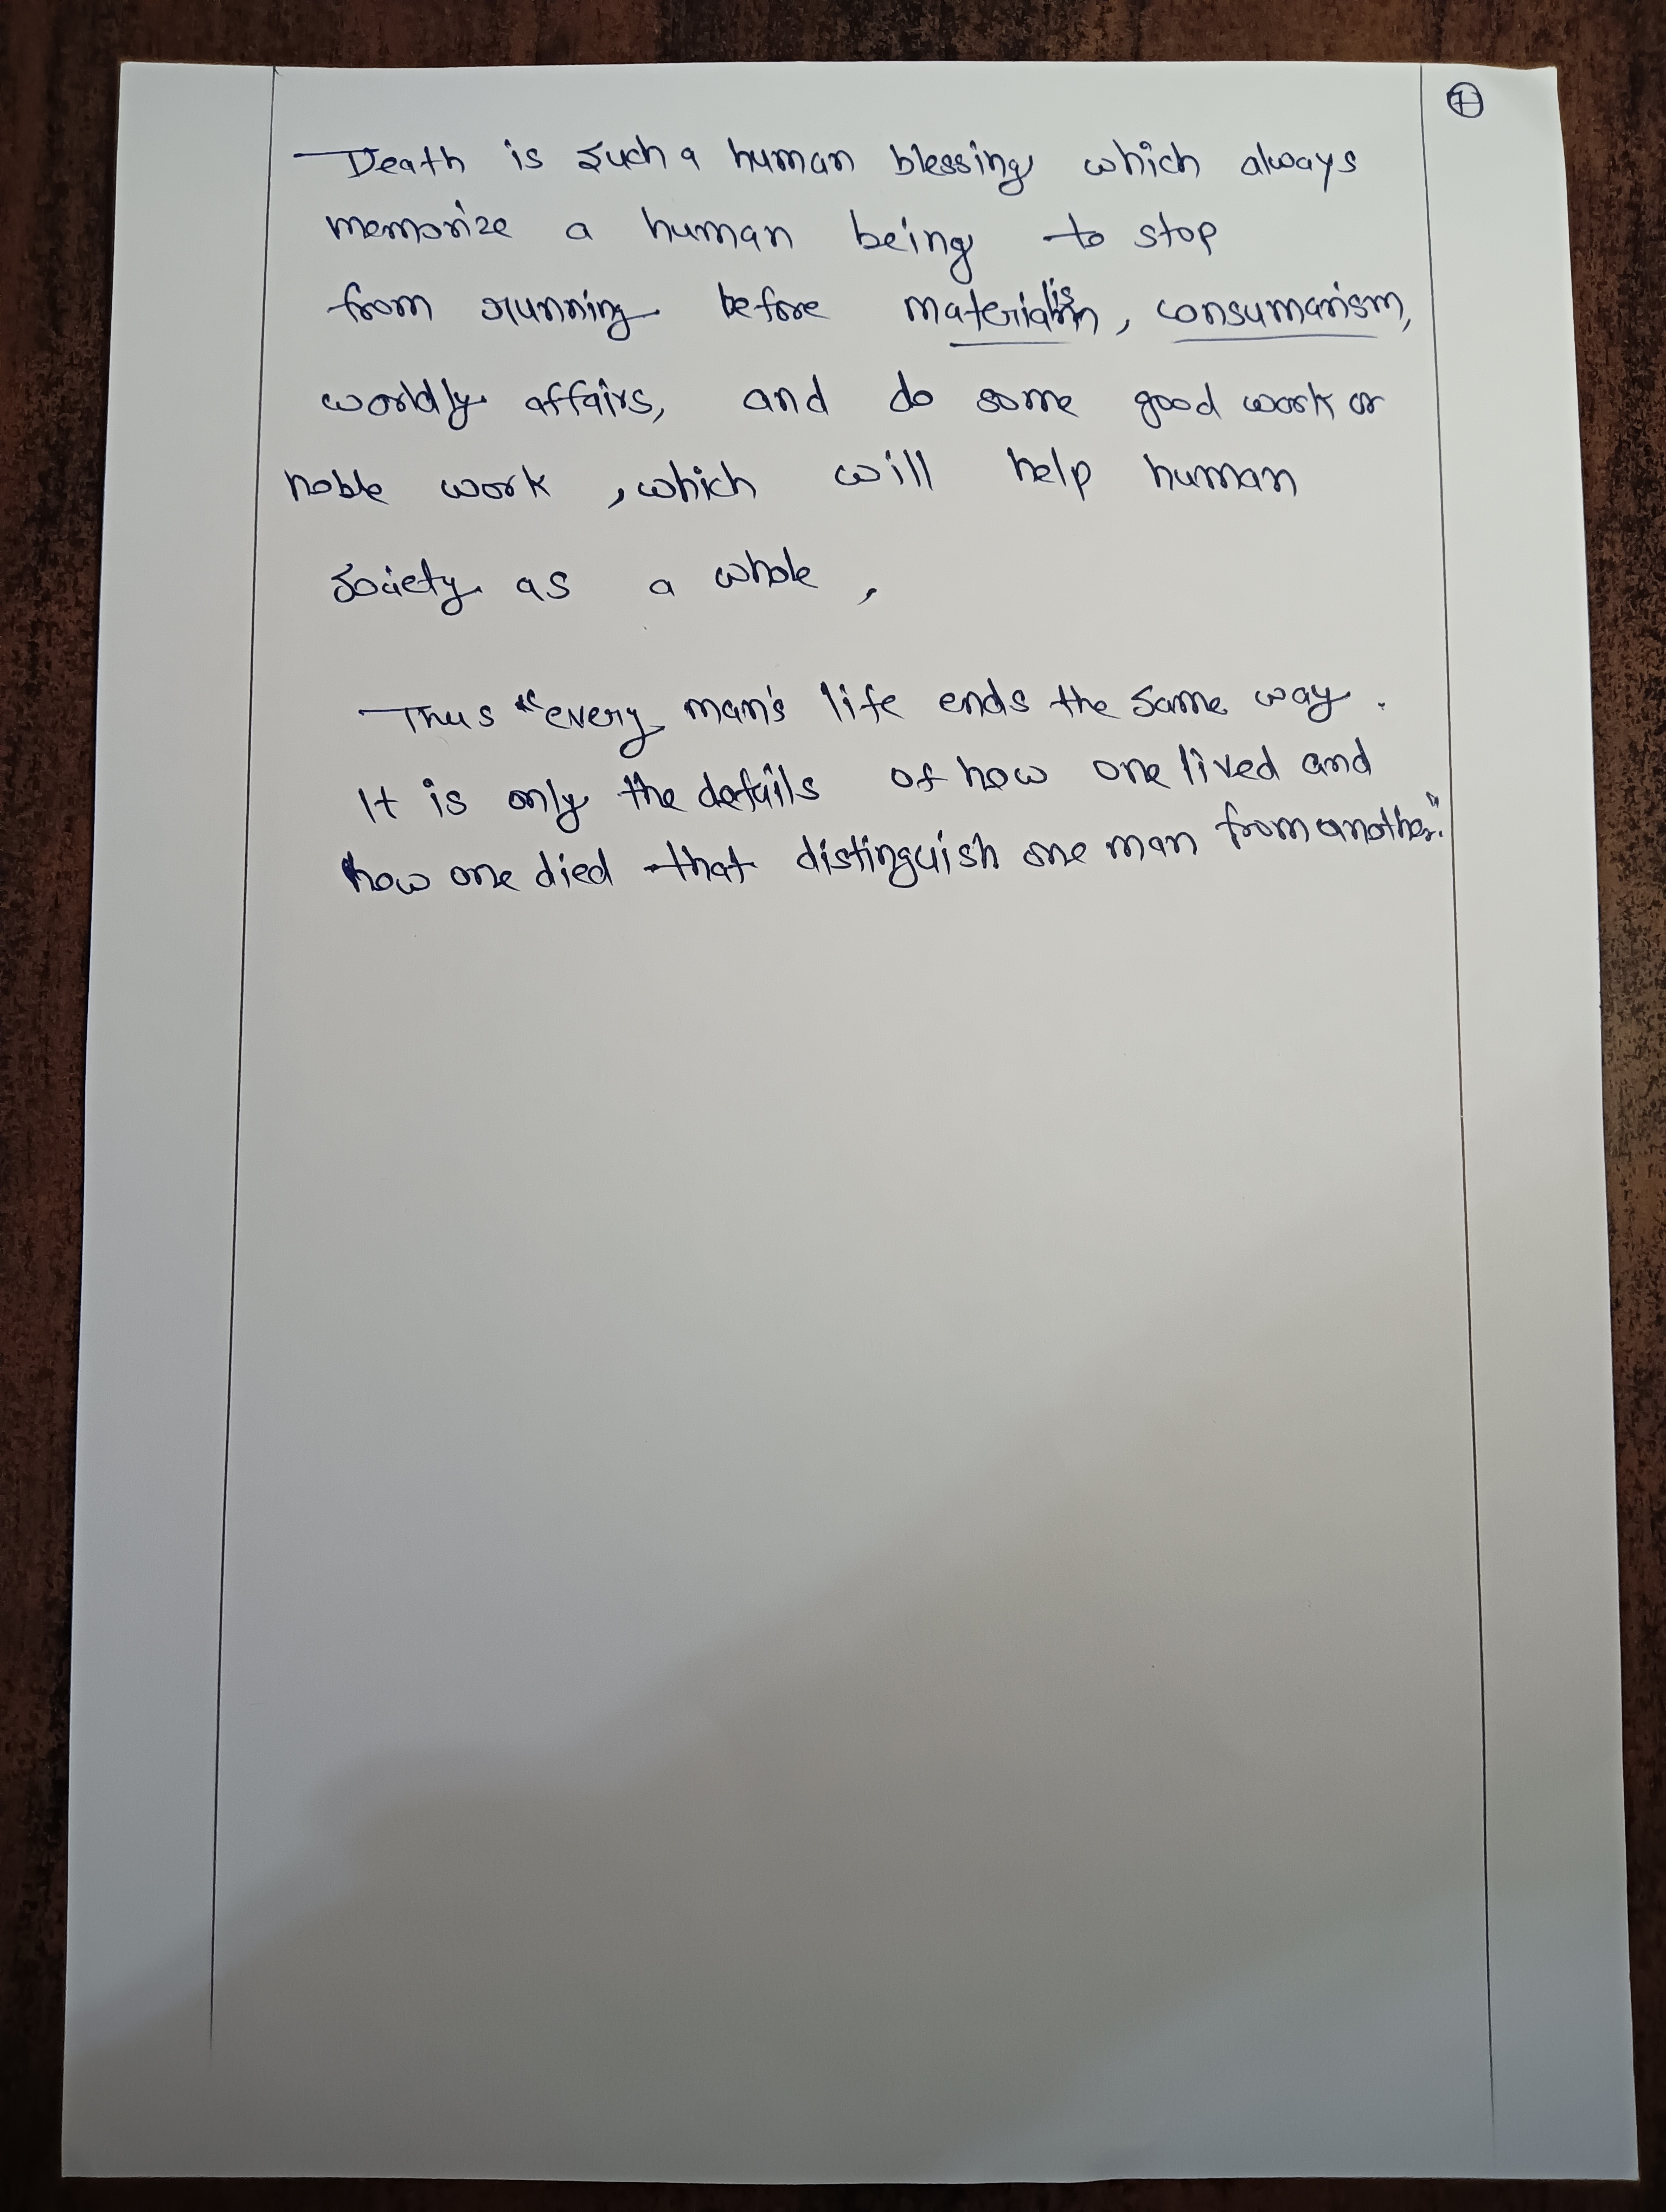 7
Death is such a human blessing which always
memorize a human being to stop
from running before materialism, consumarism,
worldly affairs, and do some good work or
noble work , which will help human
society as a whole ,
Thus "every man's life ends the same way .
It is only the details of how one lived and
how one died that distinguish one man from another."